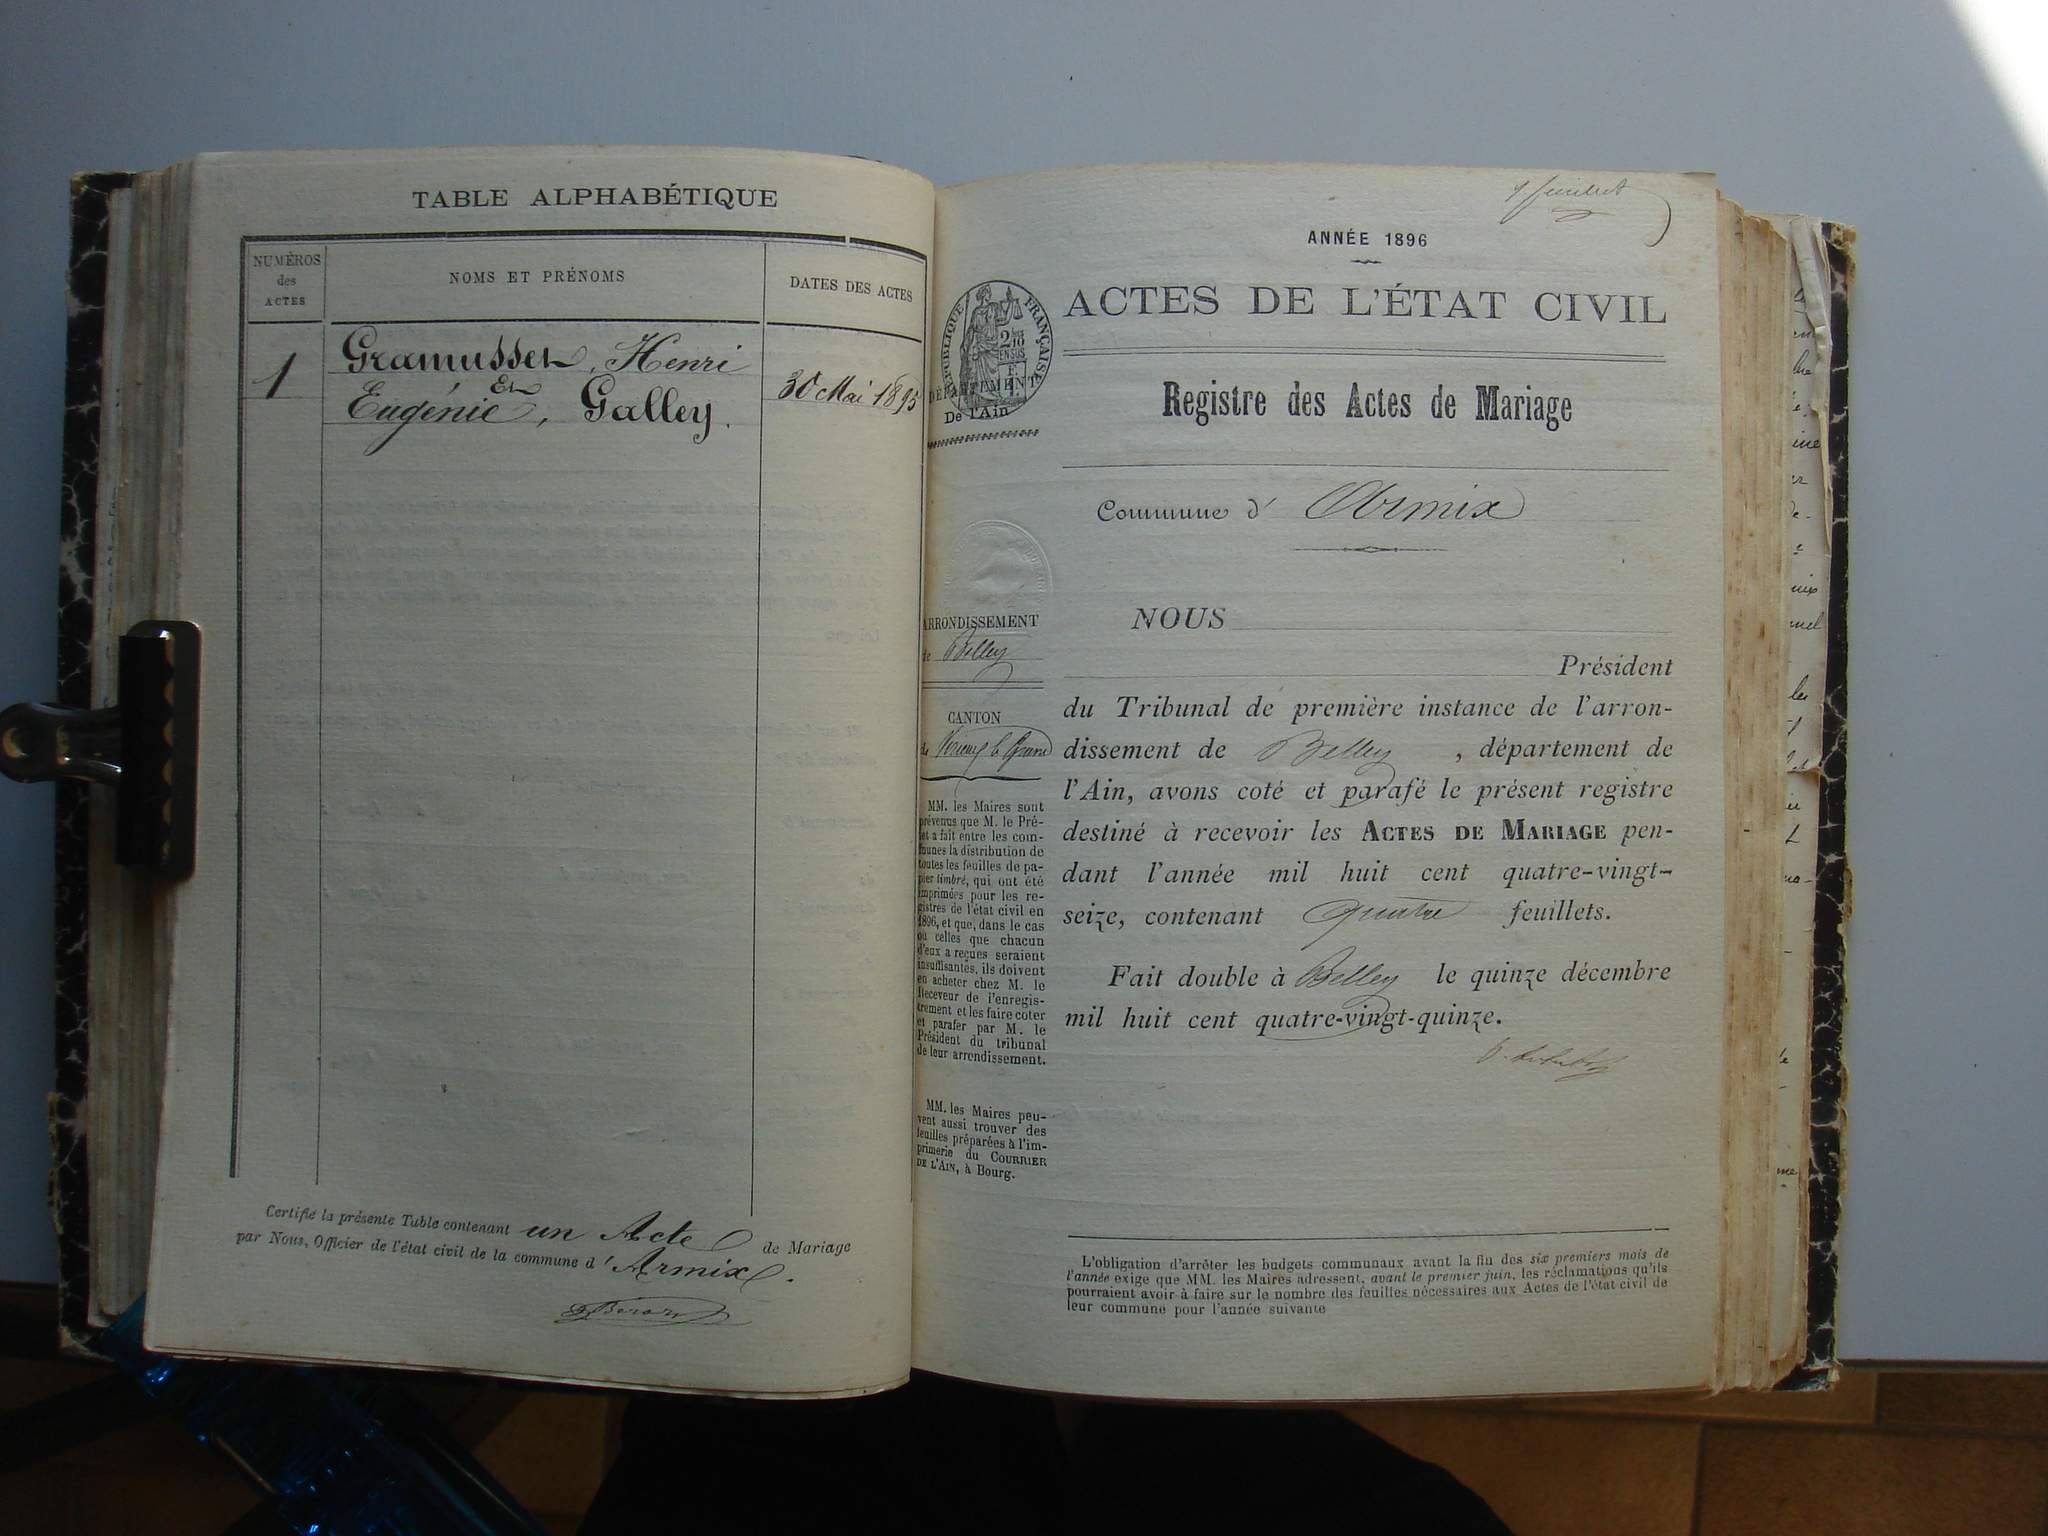 TABLE ALPHABÉTIQUE
NUMÉROS
des
ACTES
NOMS ET PRÉNOMS
DATES DES ACTES
1
Gramusset, Henri
Et
Eugénie, Galley.
30 Mai 1895
Certifié la présente Table contenant un Acte de Mariage
par Nous, Officier de l'état civil de la commune d'Armix.
ANNÉE 1896
ACTES DE L'ÉTAT CIVIL
RÉPUBLIQUE FRANÇAISE
2
DÉPARTEMENT
De l'Ain
Registre des Actes de Mariage
Commune d' Armix
ARRONDISSEMENT
de Belley
CANTON
de Virieu le Grand
MM. les Maires sont
prévenus que M. le Pré-
fet a fait entre les com-
munes la distribution de
toutes les feuilles de pa-
pier timbré, qui ont été
imprimées pour les re-
gistres de l'état civil en
1896, et que, dans le cas
où celles que chacun
d'eux a reçues seraient
insuffisantes, ils doivent
en acheter chez M. le
Receveur de l'enregis-
trement et les faire coter
et parafer par M. le
Président du tribunal
de leur arrondissement.
MM. les Maires peu-
vent aussi trouver des
feuilles préparées à l'im-
primerie du COURRIER
DE L'AIN, à Bourg.
NOUS
Président
du Tribunal de première instance de l'arron-
dissement de Belley, département de
l'Ain, avons coté et parafé le présent registre
destiné à recevoir les ACTES DE MARIAGE pen-
dant l'année mil huit cent quatre-vingt-
seize, contenant quatre feuillets.
Fait double à Belley le quinze décembre
mil huit cent quatre-vingt-quinze.
L'obligation d'arrêter les budgets communaux avant la fin des six premiers mois de
l'année exige que MM. les Maires adressent, avant le premier juin, les réclamations qu'ils
pourraient avoir à faire sur le nombre des feuilles nécessaires aux Actes de l'état civil de
leur commune pour l'année suivante